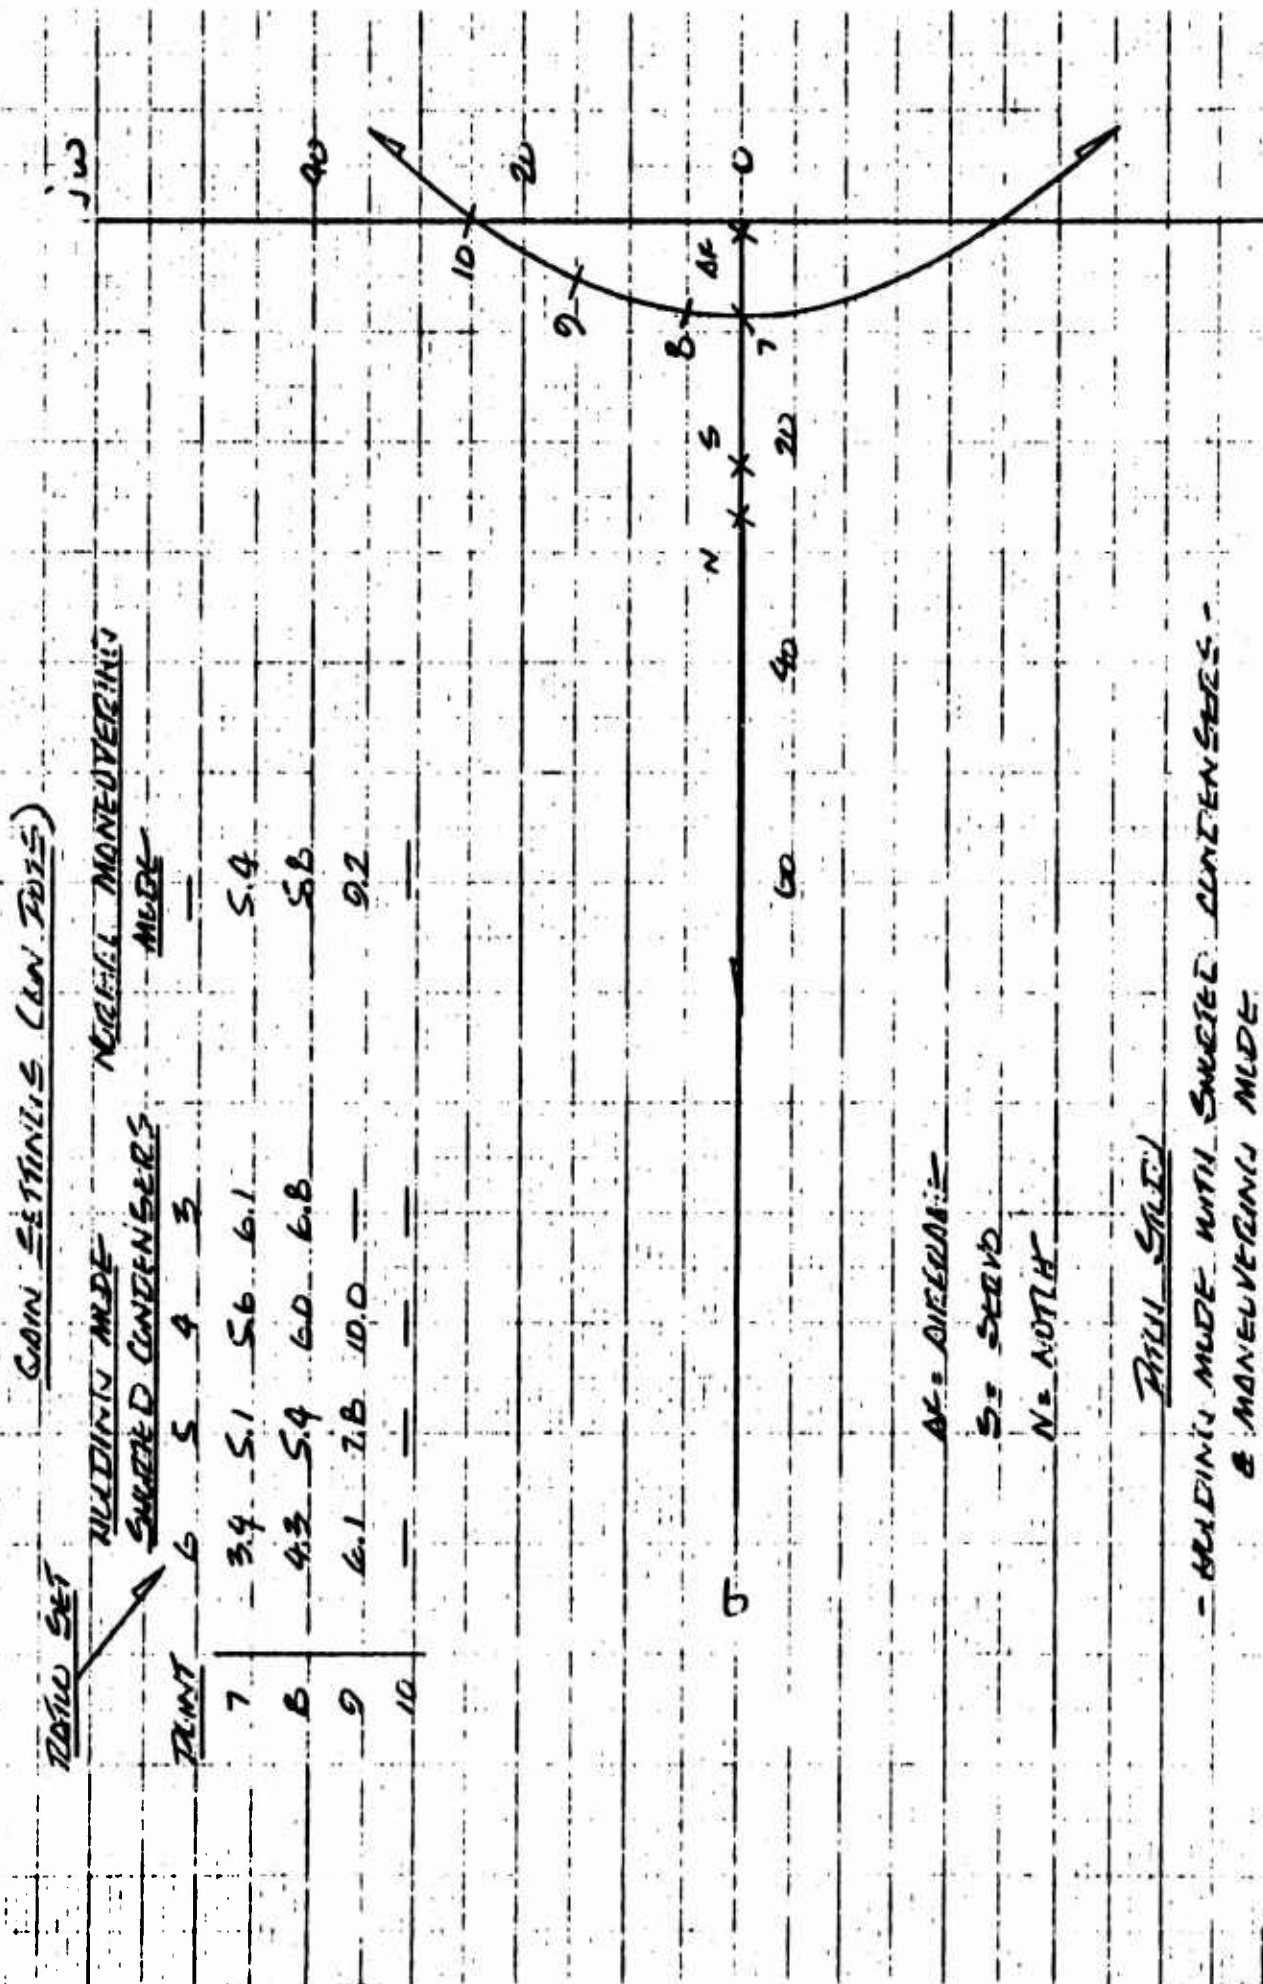 GAIN SETTINGS (ON POTS)
RATIO SET
HOLDING MODE
SHORTED CONDENSERS
NORMAL MANEUVERING
MODE
POINT 6 5 4 3 —
7 3.4 5.1 5.6 6.1 5.4
8 4.3 5.4 6.0 6.8 5.8
9 6.1 7.8 10.0 — 9.2
10 — — — — —
jω
40
20
0
10
9
8
7
AF
S
N
20
40
60
σ
AF = AIRFRAME
S = SERVO
N = NOTCH
PITCH
- HOLDING MODE WITH SHORTED CONDENSERS -
& MANEUVERING MODE